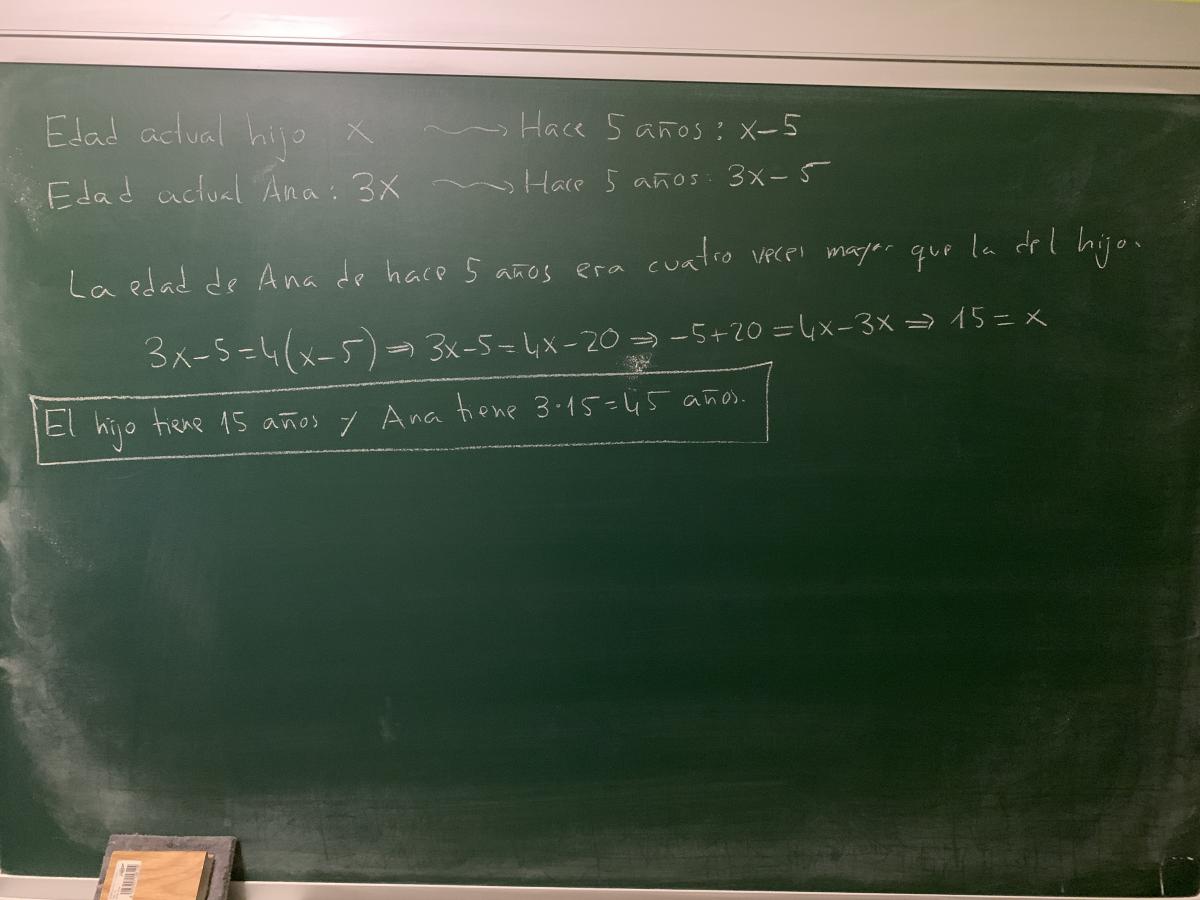 Edad actual hijo x ⇝ Hace 5 años: x-5
Edad actual Ana: 3x ⇝ Hace 5 años: 3x-5
La edad de Ana de hace 5 años era cuatro veces mayor que la del hijo.
3x-5=4(x-5) ⇒ 3x-5=4x-20 ⇒ -5+20=4x-3x ⇒ 15=x
El hijo tiene 15 años y Ana tiene 3·15=45 años.